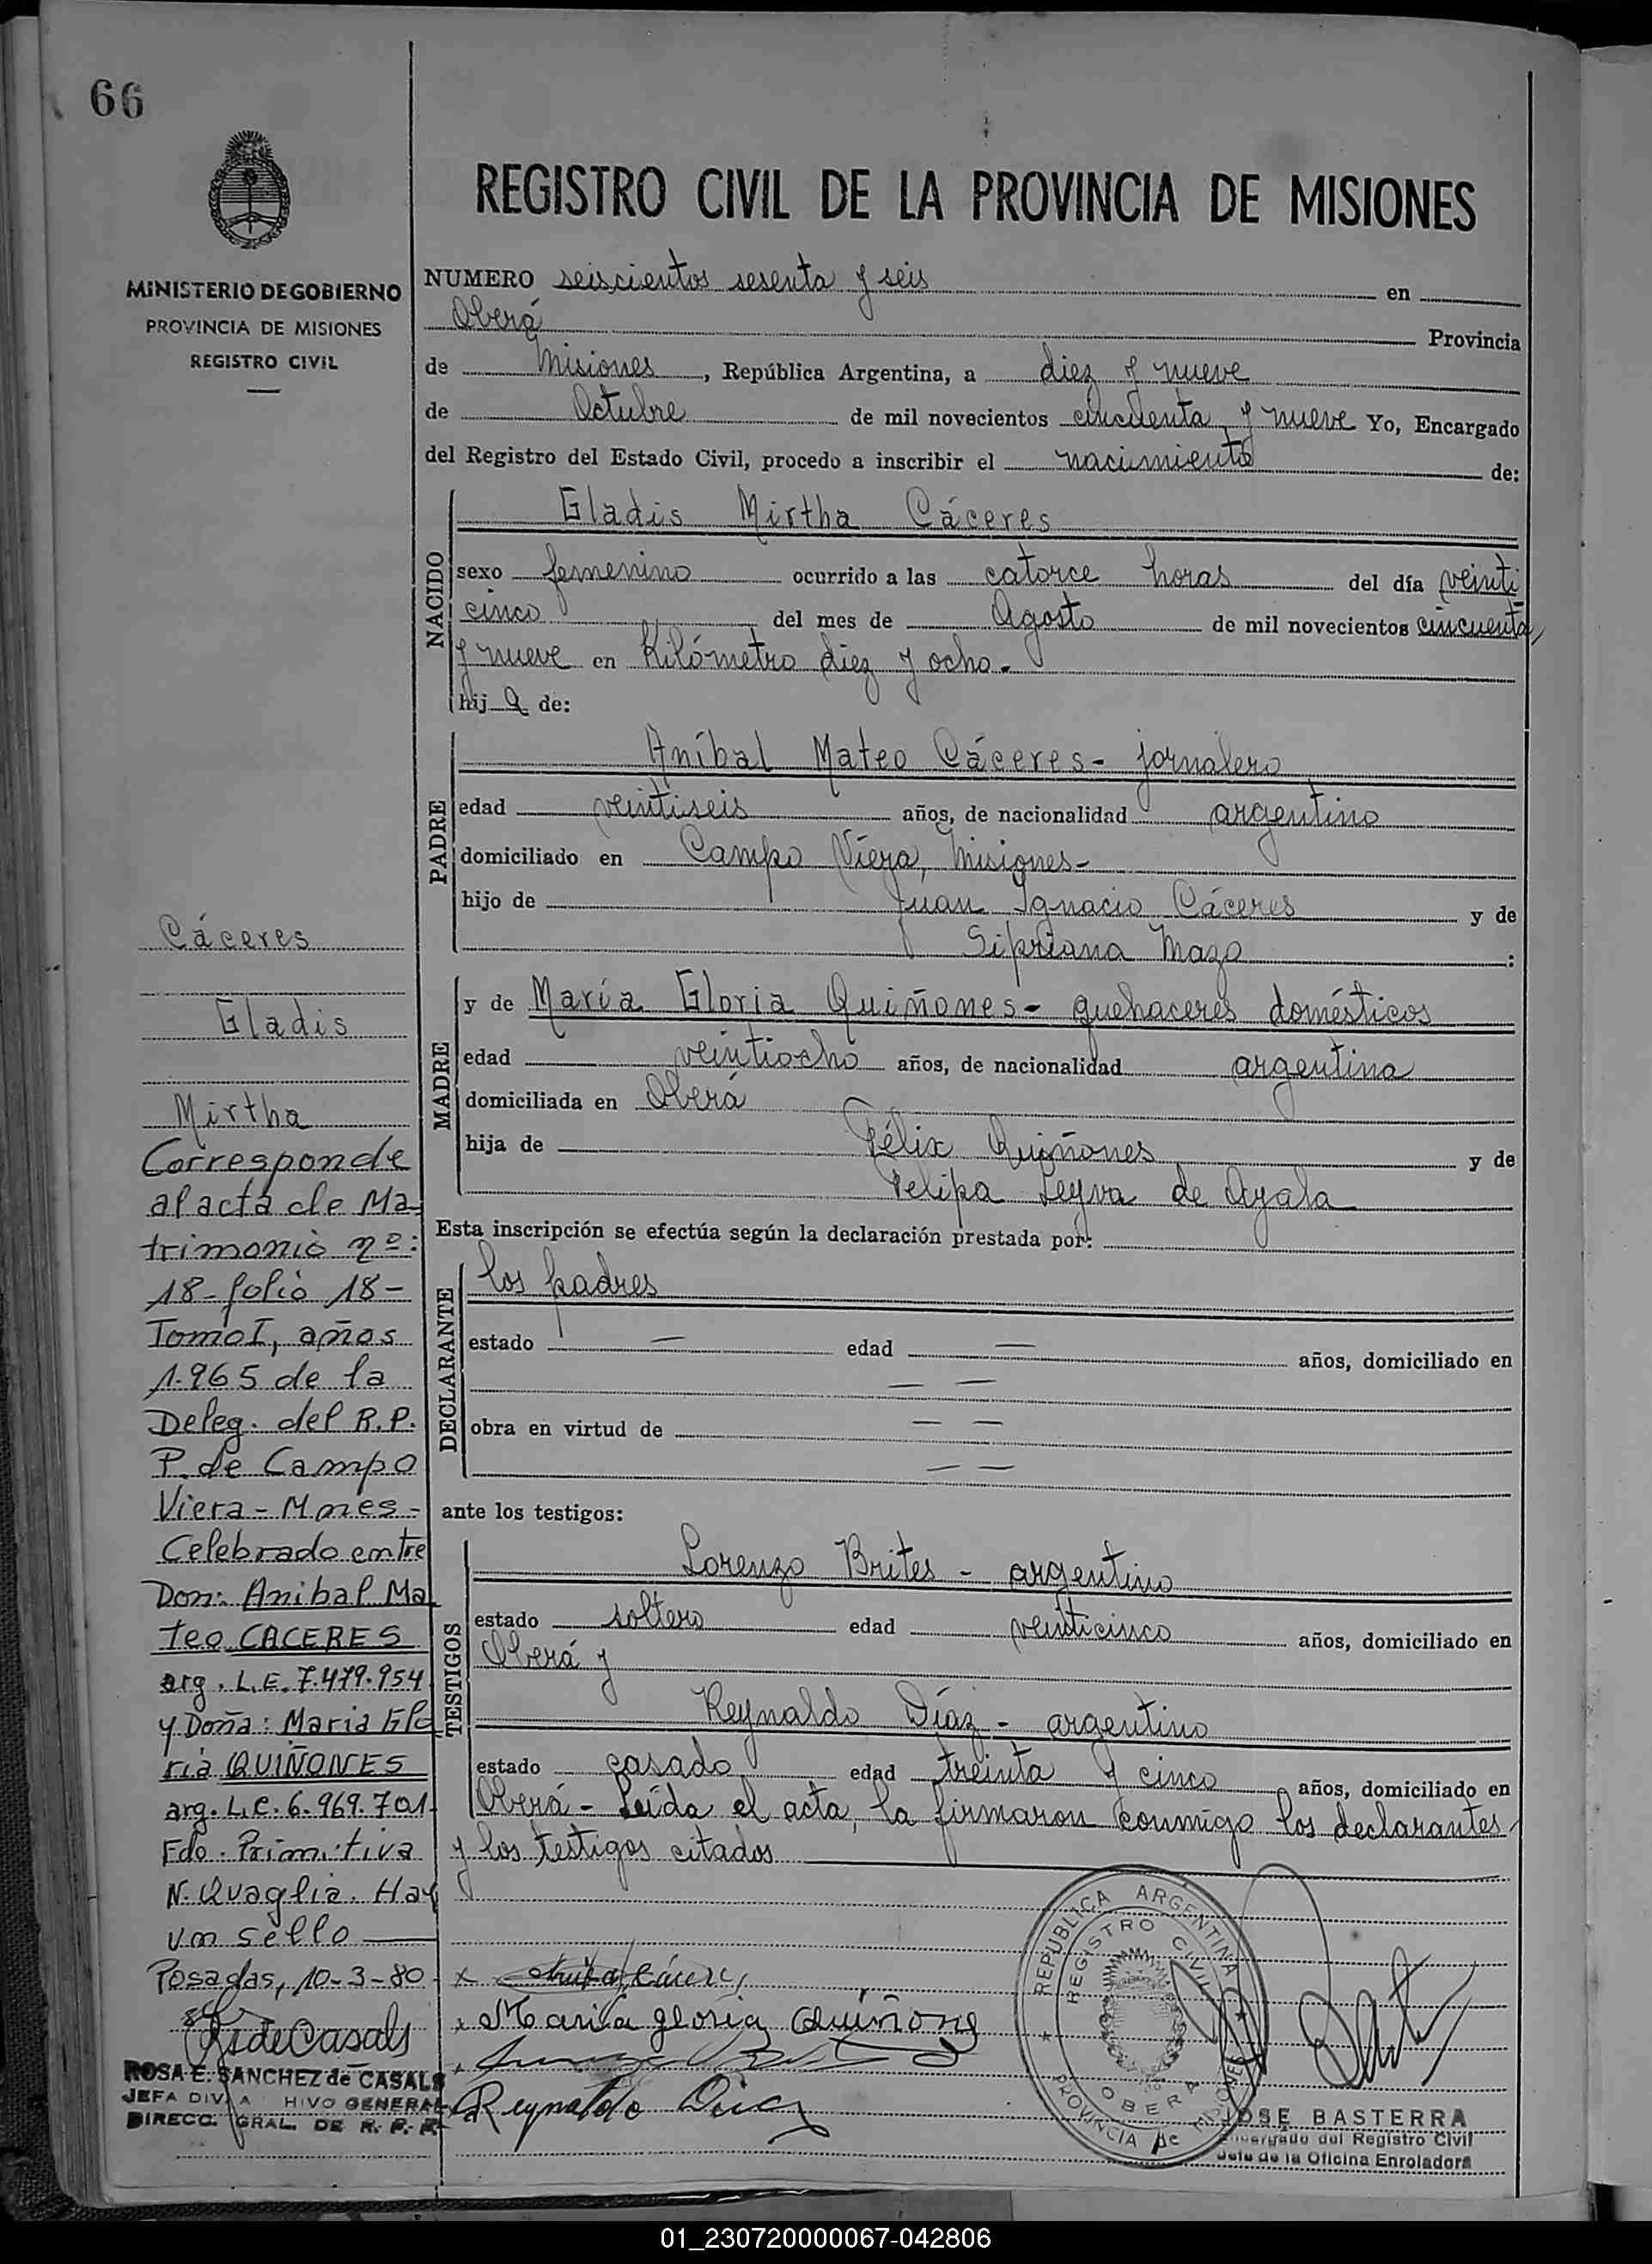 66
MINISTERIO DE GOBIERNO
PROVINCIA DE MISIONES
REGISTRO CIVIL
Cáceres
Gladis
Mirtha
Corresponde
al acta de Ma-
trimonio nº:
18-folio 18-
Tomo I, años
1.965 de la
Deleg. del R.P.
P. de Campo
Viera - Mnes-
Celebrado entre
Don: Anibal Ma
teo CACERES
arg. L.E. 7.479.954
y Doña: Maria Glo
ria QUIÑONES
arg. L.C. 6.969.701
Fdo. Primitiva
N. Quaglia. Hay
un sello
Posadas, 10-3-80
ROSA E. SANCHEZ de CASALS
JEFA DIV. A HIVO GENERAL
DIRECC. GRAL. DE R. P. P.
REGISTRO CIVIL DE LA PROVINCIA DE MISIONES
NUMERO seiscientos sesenta y seis en
Oberá Provincia
de Misiones, República Argentina, a diez y nueve
de Octubre de mil novecientos cincuenta y nueve Yo, Encargado
del Registro del Estado Civil, procedo a inscribir el nacimiento de:
NACIDO
Gladis Mirtha Cáceres
sexo femenino ocurrido a las catorce horas del día veinti
cinco del mes de Agosto de mil novecientos cincuenta
y nueve en Kilómetro diez y ocho.-
hij a de:
PADRE
Aníbal Mateo Cáceres- jornalero
edad veintiseis años, de nacionalidad argentino
domiciliado en Campo Viera, Misiones-
hijo de Juan Ignacio Cáceres y de
Sipriana Mazo :
MADRE
y de María Gloria Quiñones- quehaceres domésticos
edad veintiocho años, de nacionalidad argentina
domiciliada en Oberá
hija de Félix Quiñones y de
Felipa Leyva de Ayala
Esta inscripción se efectúa según la declaración prestada por:
DECLARANTE
los padres
estado — edad — años, domiciliado en
— —
obra en virtud de — —
— —
ante los testigos:
TESTIGOS
Lorenzo Brites - argentino
estado soltero edad veinticinco años, domiciliado en
Oberá y
Reynaldo Díaz - argentino
estado casado edad treinta y cinco años, domiciliado en
Oberá - Leída el acta, la firmaron conmigo los declarantes
y los testigos citados
x Maria gloria Quiñones
Reynaldo Diaz
REPUBLICA ARGENTINA
REGISTRO CIVIL
OBERA
PROVINCIA DE MISIONES
JOSE BASTERRA
Encargado del Registro Civil
Jefe de la Oficina Enroladora
01_230720000067-042806